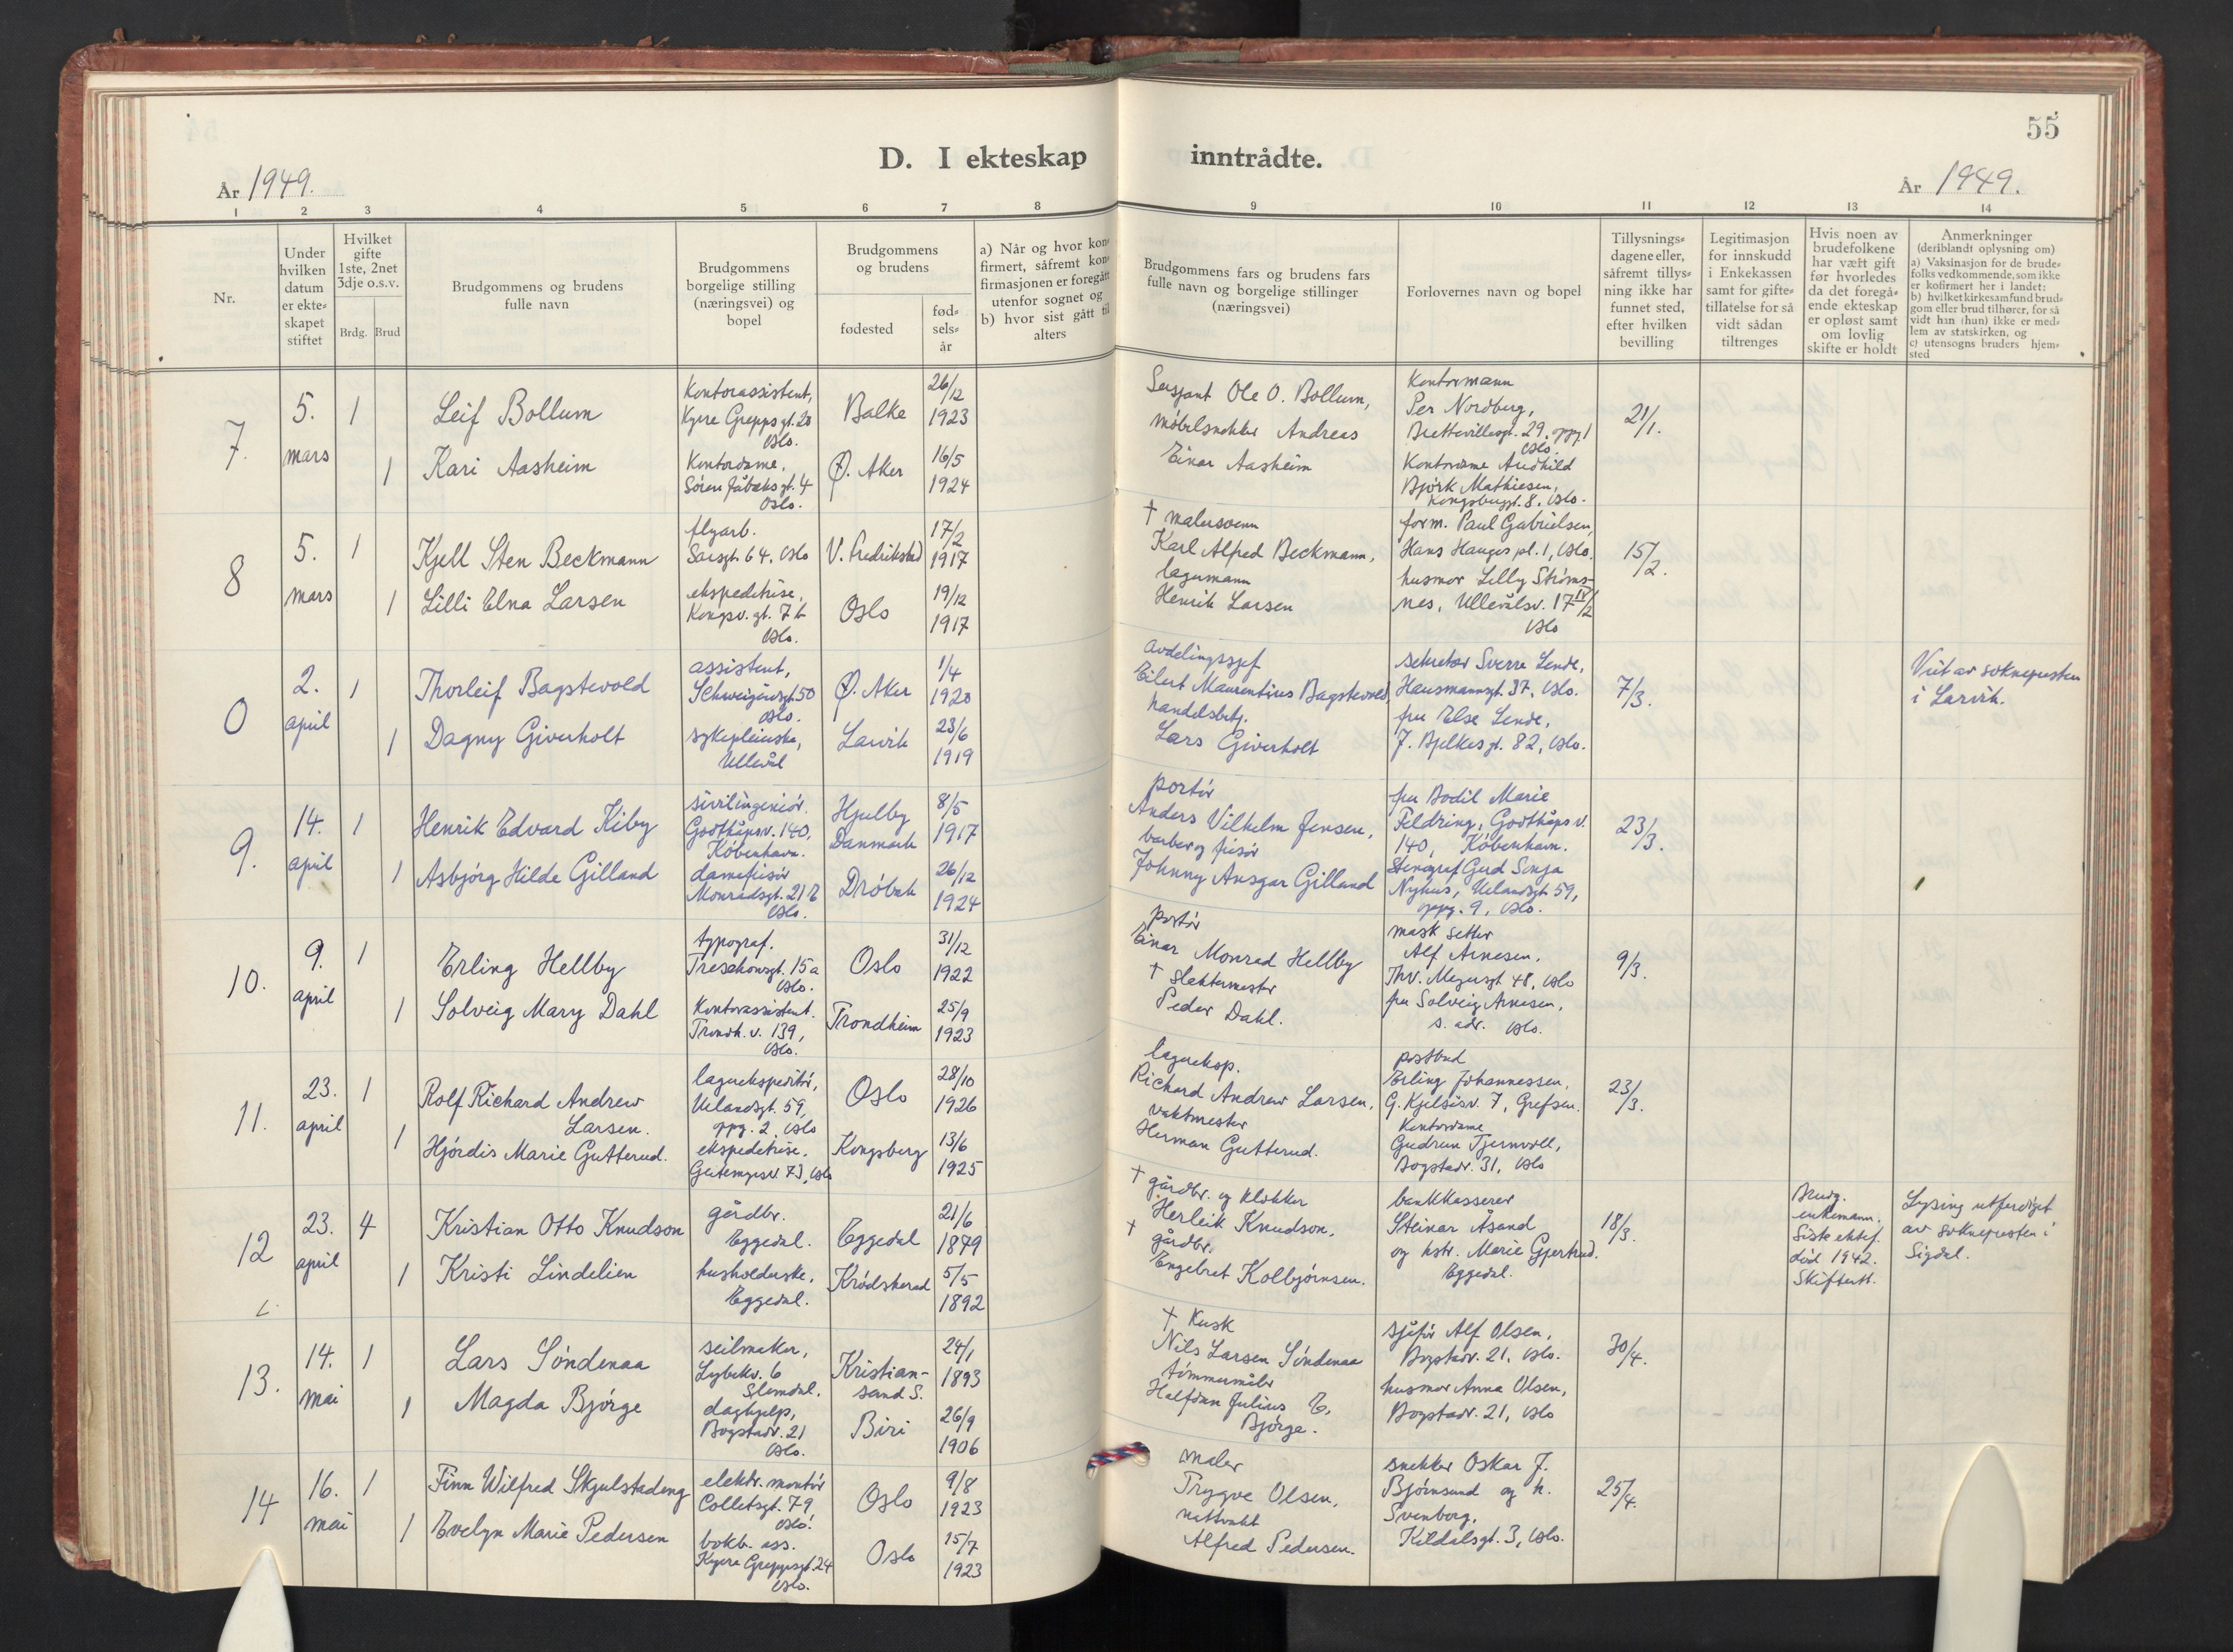 55
D. I ekteskap inntrådte.
År 1949. År 1949.
1 2 3 4 5 6 7 8 9 10 11 12 13 14
Nr.
Under hvilken datum er ekteskapet stiftet
Hvilket gifte 1ste, 2net 3dje o.s.v.
Brdg. Brud
Brudgommens og brudens fulle navn
Brudgommens borgelige stilling (næringsvei) og bopel
Brudgommens og brudens
fødested
fødselsår
a) Når og hvor konfirmert, såfremt konfirmasjonen er foregått utenfor sognet og
b) hvor sist gått til alters
Brudgommens fars og brudens fars fulle navn og borgelige stillinger (næringsvei)
Forlovernes navn og bopel
Tillysningsdagene eller, såfremt tillysning ikke har funnet sted, efter hvilken bevilling
Legitimasjon for innskudd i Enkekassen samt for giftetillatelse for så vidt sådan tiltrenges
Hvis noen av brudefolkene har vært gift før hvorledes da det foregående ekteskap er opløst samt om lovlig skifte er holdt
Anmerkninger
(deriblandt oplysning om)
a) Vaksinasjon for de brudefolks vedkommende, som ikke er kofirmert her i landet;
b) hvilket kirkesamfund brudgom eller brud tilhører, for så vidt han (hun) ikke er medlem av statskirken, og
c) utensogns bruders hjemsted
7.
5. mars
1
Leif Bollum
Kontorassistent,
Kyrre Greppsgt. 20
Oslo.
Balke
26/12
1923
Sersjant Ole O. Bollum,
Kontormann
Per Nordberg,
Brettevillesgt. 29, oppg. 1
Oslo.
21/1.
1
Kari Aasheim
Kontordame,
Søren Jåbæksgt. 4
Oslo.
Ø. Aker
16/5
1924
møbelsnekker Andreas
Einar Aasheim
Kontordame Audhild
Bjørk Mathiesen,
Kongsbergt. 8, Oslo.
8
5. mars
1
Kjell Sten Beckmann
flyarb.
Sarsgt. 64, Oslo
V. Fredrikstad
17/2
1917
† malersvenn
Karl Alfred Beckmann,
form. Paul Gabrielsen,
Hans Hauges pl. 1, Oslo.
15/2.
1
Lilli Elna Larsen
ekspeditrise,
Kongsv. gt. 7 b
Oslo.
Oslo
19/12
1917
lagermann
Henrik Larsen
husmor Lilly Strømsnes, Ullevålsv. 17 IV/2
Oslo
0
2. april
1
Thorleif Bagstevold
assistent,
Schweigårdsgt. 50
Oslo.
Ø. Aker
1/4
1920
avdelingssjef
Eilert Maurentius Bagstevold,
sekretær Sverre Lende,
Hausmannsgt. 37, Oslo.
7/3.
Viet av soknepresten
i Larvik.
1
Dagny Giverholt
sykepleierske,
Ullevål
Larvik
23/6
1919
handelsbetj.
Lars Giverholt
fru Else Lende,
J. Bjelkesgt. 82, Oslo.
9.
14. april
1
Henrik Edvard Kiby
sivilingeniør.
Godthåpsv. 140,
København.
Hjulby
Danmark
8/5
1917
portør
Anders Vilhelm Jensen,
fru Bodil Marie
Feldring, Godthåps v.
140, København.
23/3.
1
Asbjørg Hilde Gilland
damefrisør
Monradsgt. 21 B
Oslo.
Drøbak
26/12
1924
barber og frisør
Johnny Ansgar Gilland
Stenograf Gerd Sonja
Nyhus, Uelandsgt. 59,
oppg. 9, Oslo.
10.
9. april
1
Erling Hellby
typograf.
Treschowsgt. 15a
Oslo.
Oslo
31/12
1922
portør
Einar Monrad Hellby
mask setter
Alf Arnesen.
Thv. Meyersgt 48, Oslo
9/3.
1
Solveig Mary Dahl
Kontorassistent.
Trondh. v. 139,
Oslo.
Trondheim
25/9
1923
† slaktermester
Peder Dahl.
fru Solveig Arnesen,
s. adr. Oslo.
11.
23. april
1
Rolf Richard Andrew
Larsen.
lagerekspeditør,
Uelandsgt. 59,
ppg. 2, Oslo
Oslo
28/10
1926
lagereksp.
Richard Andrew Larsen,
postbud
Erling Johannessen,
G. Kjelsåsv. 7, Grefsen.
23/3.
1
Hjørdis Marie Gutterud.
ekspeditrise.
Geitemyrsv. 73, Oslo
Kongsberg
13/6
1925
vaktmester
Herman Gutterud.
Kontordame
Gudrun Tjernvoll,
Bogstadv. 31, Oslo
12
23. april
4
Kristian Otto Knudson
gårdbr.
Eggedal.
Eggedal
21/6
1879
† gårdbr. og klokker
Herleik Knudson,
bankkasserer
Steinar Åsand
og hstr. Marie Gjertrud.
Eggedal.
18/3.
Brudg.
enkemann.
Siste ektef.
død 1942.
Skifteatt.
Lysing utferdiget
av soknepresten i
Sigdal.
1
Kristi Lindelien
husholderske,
Eggedal.
Krødsherad
5/5
1892
† gårdbr.
Engebret Kolbjørnsen.
13.
14. mai
1
Lars Søndenaa
seilmaker,
Lybekv. 6
Slemdal.
Kristiansand S.
24/1
1893
† Kusk
Nils Larsen Søndenaa
sjåfør Alf Olsen,
Bogstadv. 21, Oslo.
30/4.
1
Magda Bjørge
daghjelp,
Bogstadv. 21
Oslo.
Biri
26/9
1906
tømmermåler
Halfdan Julius E.
Bjørge.
husmor Anna Olsen,
Bogstadv. 21, Oslo
14
16. mai
1
Finn Wilfred Skjulstadeng
elektr. montør
Colletsgt. 79,
Oslo.
Oslo
9/8
1923
maler
Trygve Olsen,
snekker Oskar J.
Bjørnsund og h.
Svenborg,
Kildalsgt. 3, Oslo.
25/4.
1
Evelyn Marie Pedersen
bokb. ass.
Kyrre Greppsgt. 24
Oslo.
Oslo
15/7
1923
nattvakt
Alfred Pedersen.